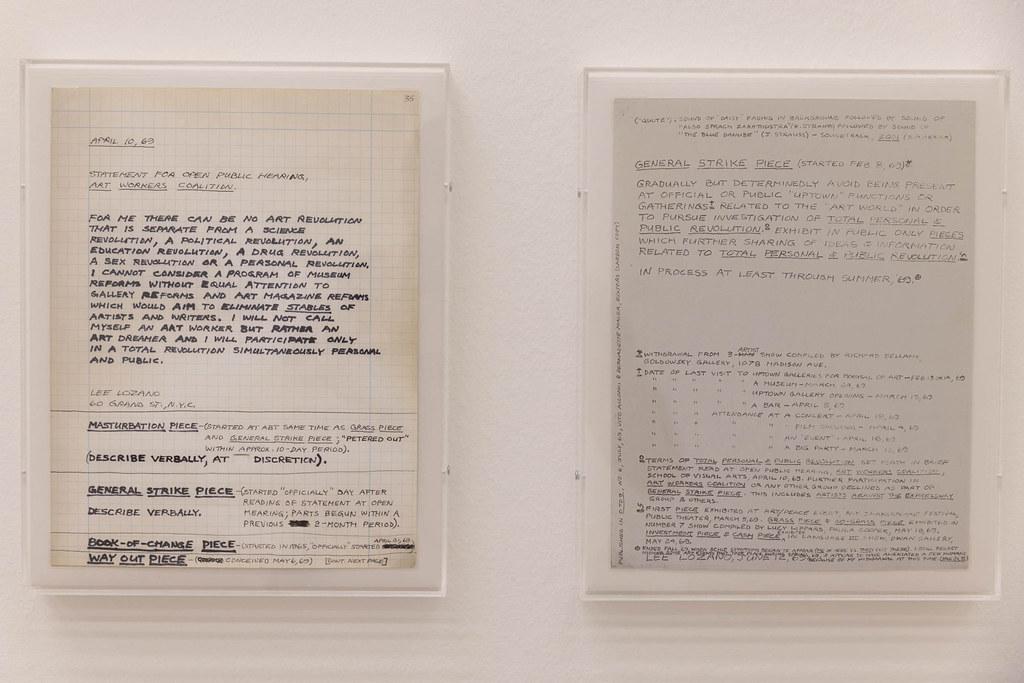 35
APRIL 10, 69
STATEMENT FOR OPEN PUBLIC HEARING,
ART WORKERS COALITION.
FOR ME THERE CAN BE NO ART REVOLUTION
THAT IS SEPARATE FROM A SCIENCE
REVOLUTION, A POLITICAL REVOLUTION, AN
EDUCATION REVOLUTION, A DRUG REVOLUTION,
A SEX REVOLUTION OR A PERSONAL REVOLUTION.
I CANNOT CONSIDER A PROGRAM OF MUSEUM
REFORMS WITHOUT EQUAL ATTENTION TO
GALLERY REFORMS AND ART MAGAZINE REFORMS
WHICH WOULD AIM TO ELIMINATE STABLES OF
ARTISTS AND WRITERS. I WILL NOT CALL
MYSELF AN ART WORKER BUT RATHER AN
ART DREAMER AND I WILL PARTICIPATE ONLY
IN A TOTAL REVOLUTION SIMULTANEOUSLY PERSONAL
AND PUBLIC.
LEE LOZANO
60 GRAND ST., N.Y.C.
MASTURBATION PIECE–(STARTED AT ABT SAME TIME AS GRASS PIECE
AND GENERAL STRIKE PIECE; "PETERED OUT"
WITHIN APPROX. 10-DAY PERIOD).
(DESCRIBE VERBALLY, AT DISCRETION).
GENERAL STRIKE PIECE–(STARTED "OFFICIALLY" DAY AFTER
READING OF STATEMENT AT OPEN
DESCRIBE VERBALLY. HEARING; PARTS BEGUN WITHIN A
PREVIOUS 2-MONTH PERIOD).
BOOK-OF-CHANGE PIECE–(STARTED IN 1965, "OFFICIALLY" STARTED
WAY OUT PIECE–( CONCEIVED MAY 6, 69) [CONT. NEXT PAGE]
("QUOTE"). SOUND OF "DAISY" FADING IN BACKGROUND FOLLOWED BY SOUND OF
"ALSO SPRACH ZARATHUSTRA" (R. STRAUSS) FOLLOWED BY SOUND OF
"THE BLUE DANUBE" (J. STRAUSS) – SOUNDTRACK, 2001
GENERAL STRIKE PIECE (STARTED FEB 8, 69)
GRADUALLY BUT DETERMINEDLY AVOID BEING PRESENT
AT OFFICIAL OR PUBLIC "UPTOWN" FUNCTIONS OR
GATHERINGS RELATED TO THE "ART WORLD" IN ORDER
TO PURSUE INVESTIGATION OF TOTAL PERSONAL &
PUBLIC REVOLUTION. EXHIBIT IN PUBLIC ONLY PIECES
WHICH FURTHER SHARING OF IDEAS & INFORMATION
RELATED TO TOTAL PERSONAL & PUBLIC REVOLUTION.
IN PROCESS AT LEAST THROUGH SUMMER, 69.
WITHDRAWAL FROM 3-ARTIST SHOW COMPILED BY RICHARD BELLAMY,
GOLDOWSKY GALLERY, 1078 MADISON AVE.
DATE OF LAST VISIT TO UPTOWN GALLERIES FOR PERUSAL OF ART–FEB
" " " " " A MUSEUM–MARCH
" " " " " UPTOWN GALLERY OPENING–MARCH 15, 69
" " " " " A BAR–APRIL 5, 69
" " " ATTENDANCE AT A CONCERT–APRIL 18, 69
" " " " " FILM SHOWING–APRIL 4, 69
" " " " " AN "EVENT"–APRIL 18, 69
" " " " " A BIG PARTY–MARCH
TERMS OF TOTAL PERSONAL & PUBLIC REVOLUTION SET FORTH IN BRIEF
STATEMENT READ AT OPEN PUBLIC HEARING, ART WORKERS COALITION,
SCHOOL OF VISUAL ARTS, APRIL 10, 69. FURTHER PARTICIPATION IN
ART WORKERS COALITION OR ANY OTHER GROUP DECLINED AS PART OF
GENERAL STRIKE PIECE. THIS INCLUDES ARTISTS AGAINST THE EXPRESSWAY
GROUP & OTHERS.
FIRST PIECE EXHIBITED AT ART/PEACE EVENT, N.Y. SHAKESPEARE FESTIVAL,
PUBLIC THEATER, MARCH 5, 69. GRASS PIECE & NO-GRASS PIECE EXHIBITED IN
NUMBER 7 SHOW COMPILED BY LUCY LIPPARD, PAULA COOPER, MAY 18, 69.
INVESTMENT PIECE & CASH PIECE, IN LANGUAGE III SHOW, DWAN GALLERY,
MAY 24, 69.
LEE LOZANO, JUNE 12, 69